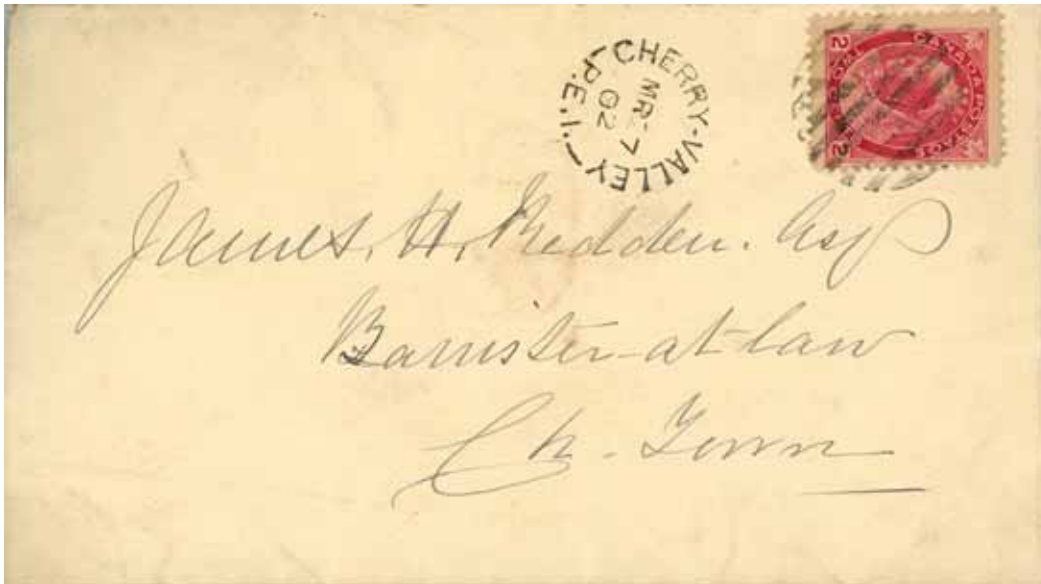 CHERRY-VALLEY
MR 7
02
P.E.I.
CANADA POSTAGE
2 2
James. H. Redden. Esq
Barrister-at-law
Ch. Town